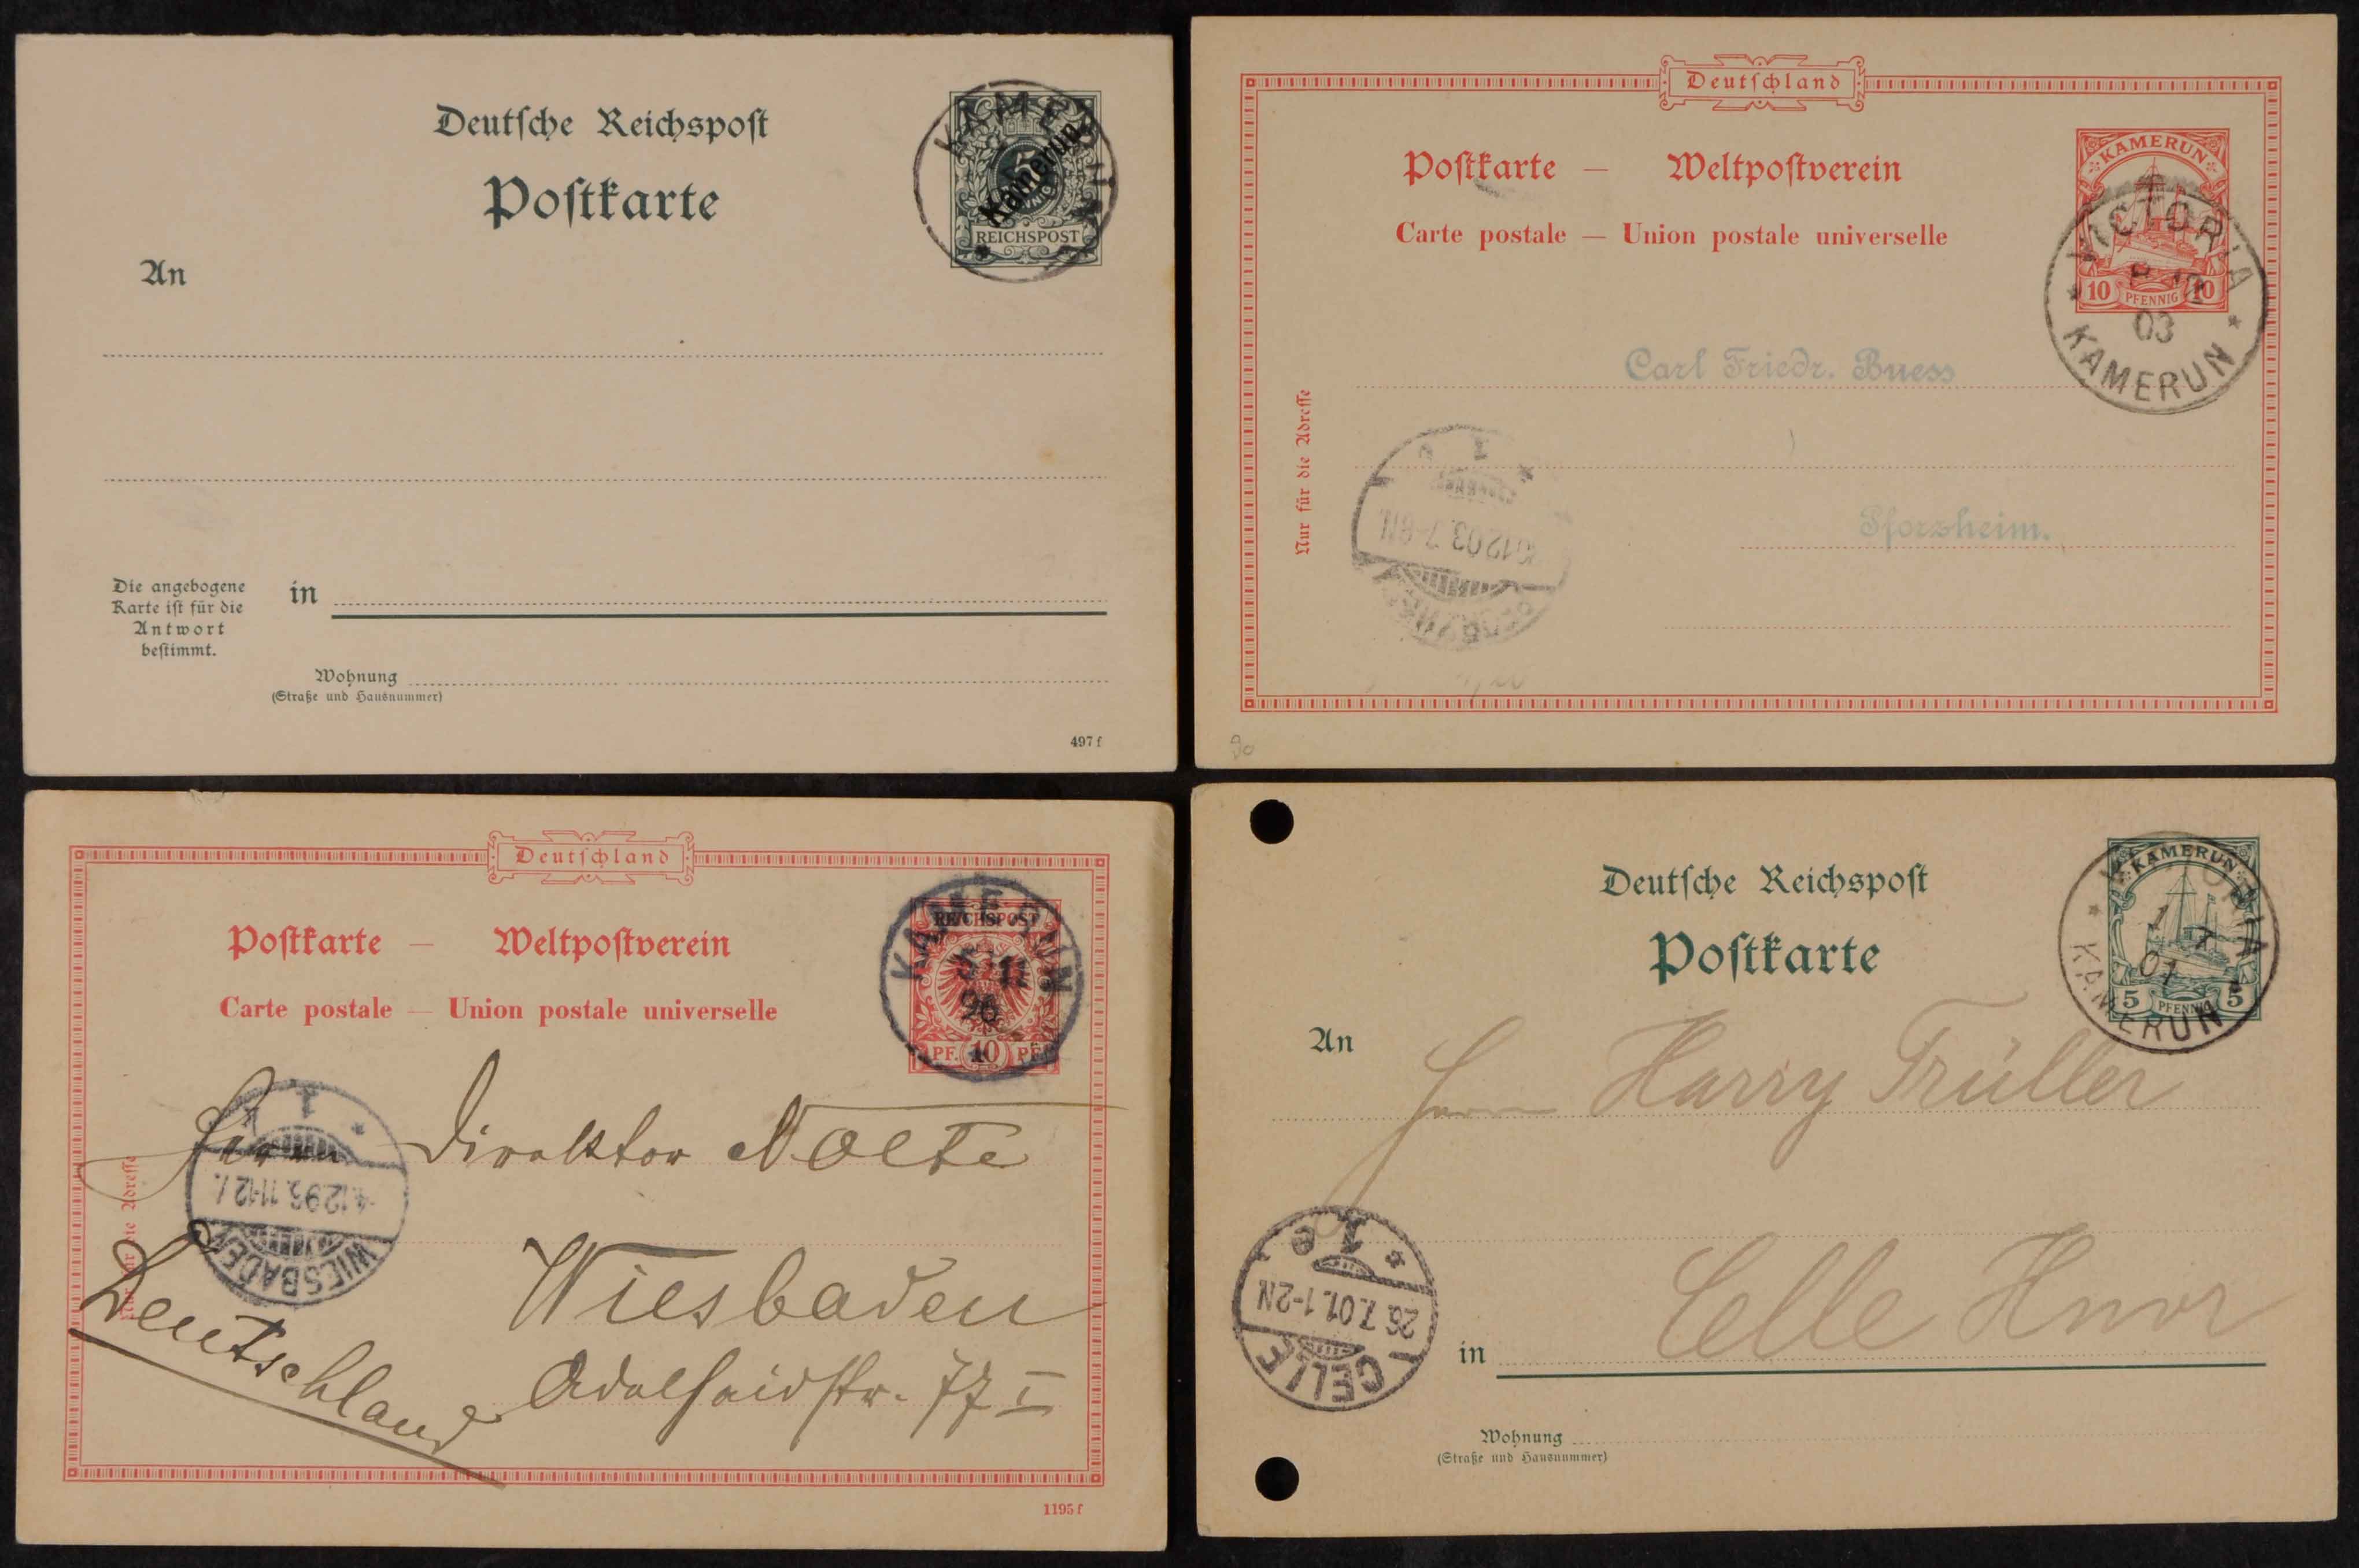 Deutsche Reichspost
Postkarte
An
Die angebogene
Karte ist für die
Antwort
bestimmt.
in
Wohnung
(Straße und Hausnummer)
497 f
KAMERUN
5
Kamerun
REICHSPOST
Deutschland
Postkarte — Weltpostverein
Carte postale — Union postale universelle
Nur für die Adresse
Carl Friedr. Buess
Pforzheim.
KAMERUN
10 PFENNIG 10
VICTORIA
03
KAMERUN
12 03. 7-8 N.
Deutschland
Postkarte — Weltpostverein
Carte postale — Union postale universelle
REICHSPOST
PF. 10 PF.
KAMERUN
96
Herrn Direktor Nolte
Wiesbaden
Adelheidstr. 77 I
Deutschland
WIESBADEN
1
4.12.96. 11-12
1195 f
Deutsche Reichspost
Postkarte
An
Herrn Harry Trüller
in
Celle Hnvr
Wohnung
(Straße und Hausnummer)
KAMERUN
5 PFENNIG 5
VICTORIA
1 7
01
KAMERUN
CELLE
26.7.01. 1-2N
* 1 e